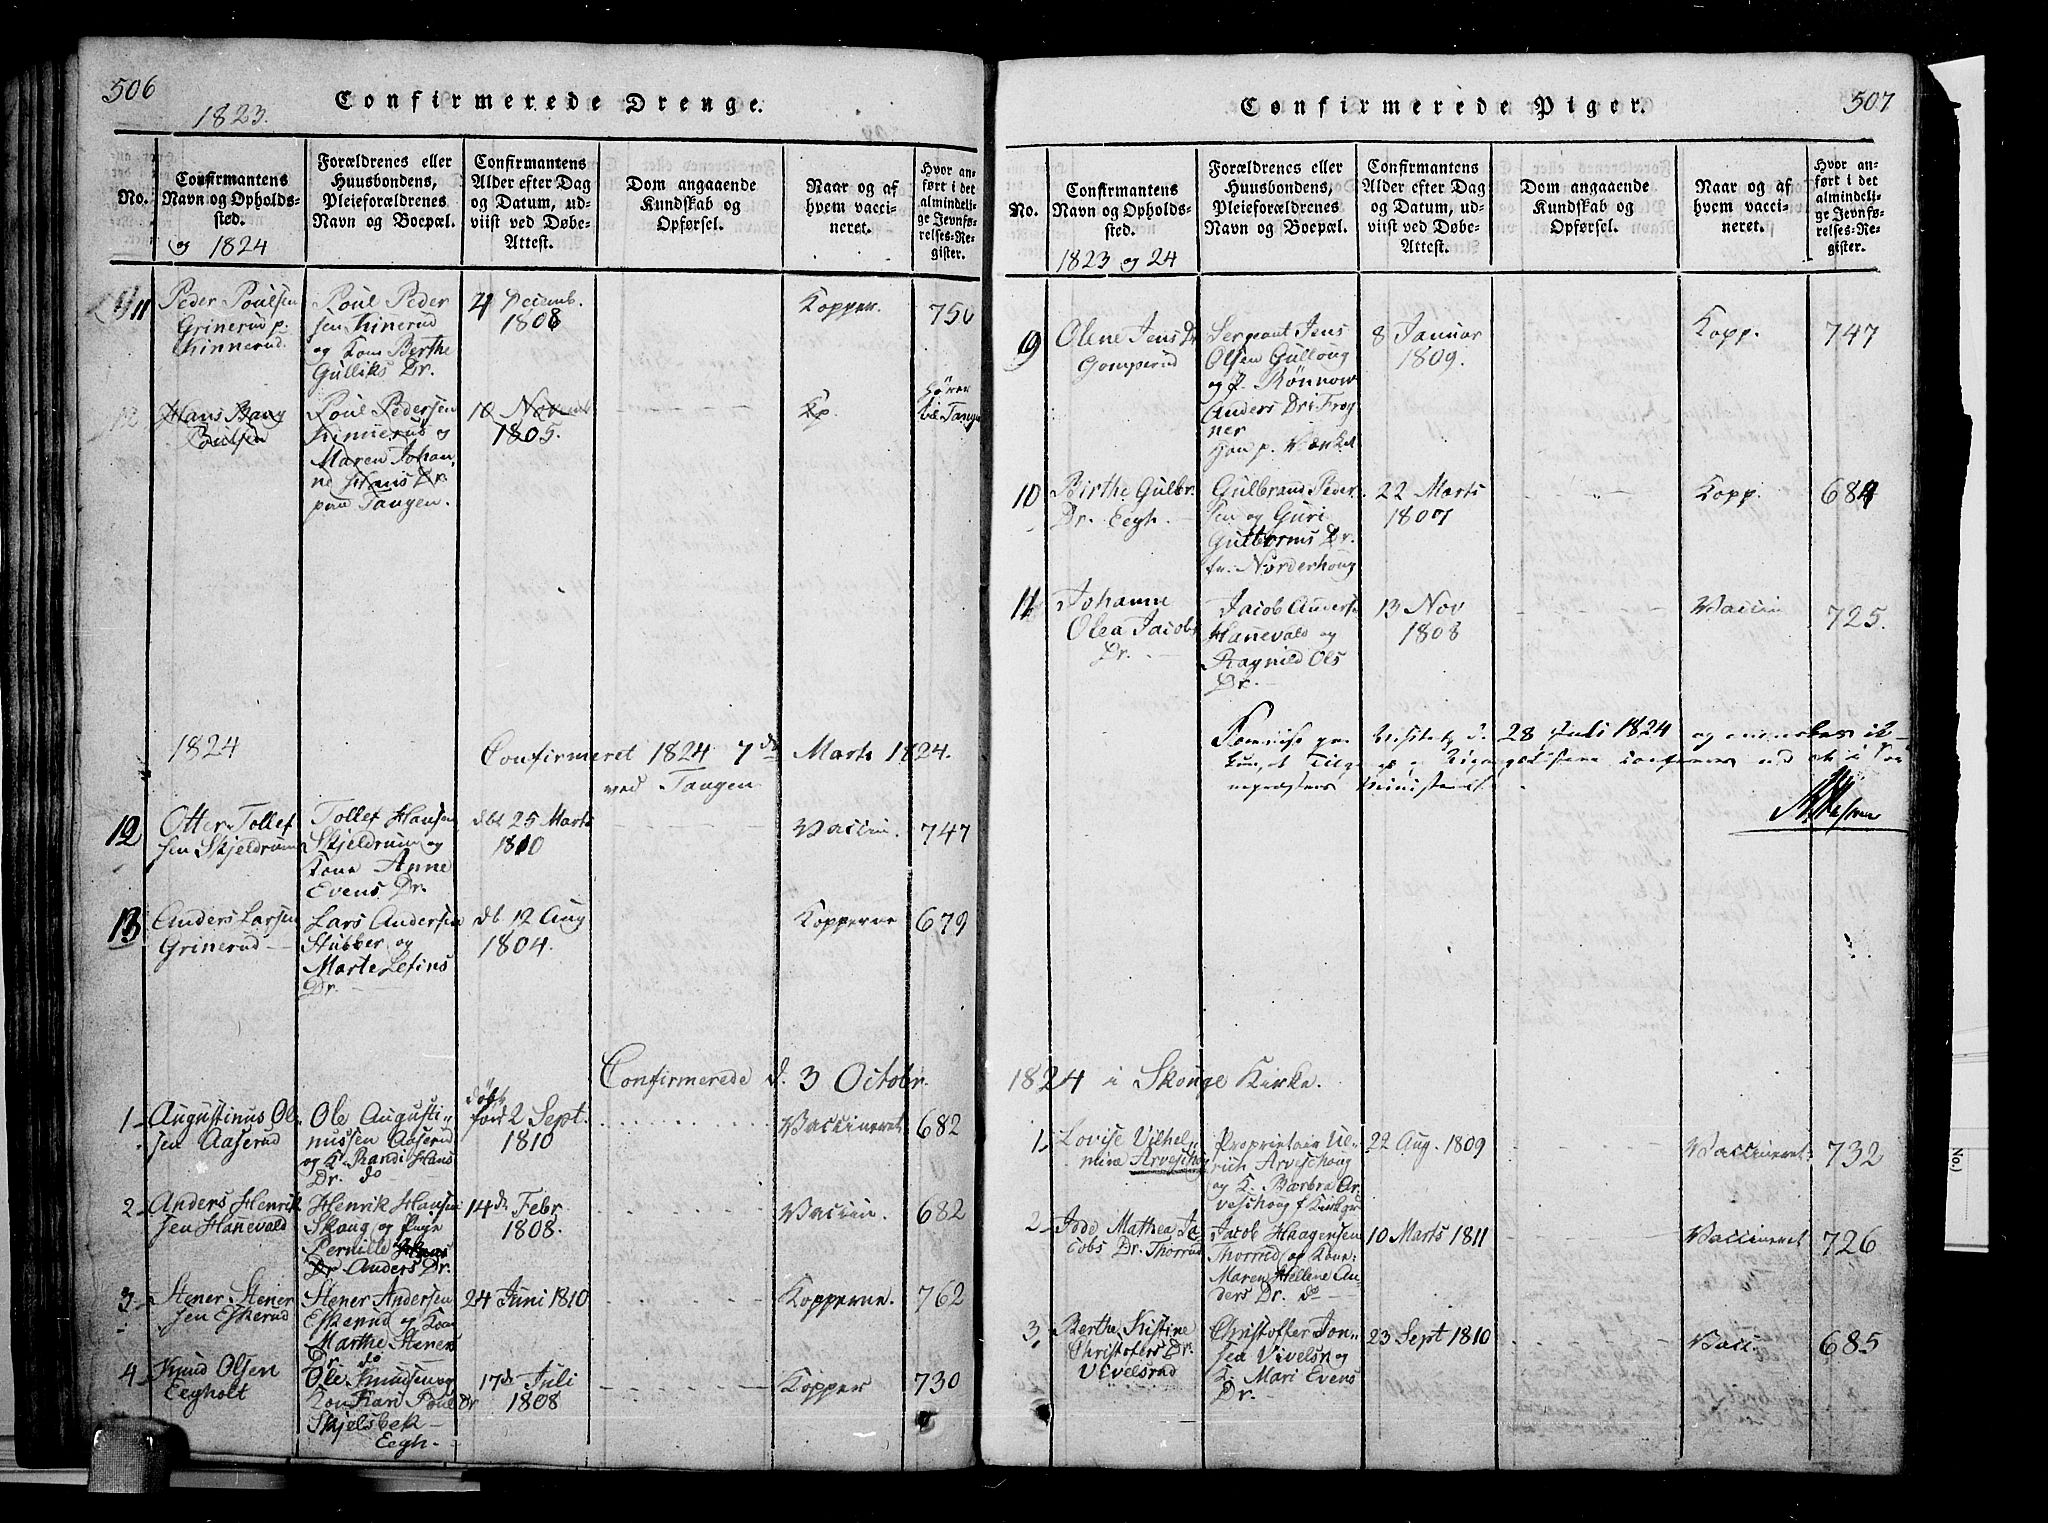 506
1823.
Confirmerede Drenge.
No.
Confirmantens
Navn og Opholds-
sted.
og 1824
Forældrenes eller
Huusbondens,
Pleieforældrenes
Navn og Boepæl.
Confirmantens
Alder efter Dag
og Datum, ud-
viist ved Døbe-
Attest.
Dom angaaende
Kundskab og
Opførsel.
Naar og af
hvem vacci-
neret.
Hvor an-
ført i det
almindeli-
ge Jevnfø-
relses-Re-
gister.
11
Peder Poulsen
Grinerud p.
Kinnerud.
Poul Peder
sen Kinerud
og Kone Berthe
Gulliks Dr.
4 Decemb.
1808
Kopper.
750
12
Hans Bang
Poulsen
Poul Pedersen
Kinnerud og
Maren Johan
ne Hans Dr.
paa Tangen.
10 Novemb
1805.
Kp.
hører
til Tangen
1824
Confirmeret 1824 7de Marts 1824.
ved Tangen
12
Otter Tollef
sen Skjeldrum
Tollef Hansen
Skjeldrum og
Kone Anne
Evens Dr.
dbt 25 Marts
1810
Vaccin.
747
13
Anders Larsen
Grinerud
Lars Andersen
Stubber og
Marte Lefins
Dr.
db 12 Aug
1804.
Kopperne
679
Confirmerede d. 3 Octobr.
1
Augustinus Ol
sen Aaserud
Ole Augusti-
nussen Aaserud
og K. Randi Hans
Dr. do
døbt
2 Sept.
1810
Vaccineret
682
2
Anders Henrik
sen Hanevald
Henrik Hansen
Skaug og Pige
Pernille Hans
Dr Anders Dr.
14de Febr
1808.
Vaccin.
682
3
Stener Stener
sen Eskerud
Stener Andersen
Eskerud og Kone
Marthe Steners
Dr do
24 Juni 1810
Kopperne.
762
4
Knud Olsen
Eegholt
Ole Knudsen og
Kone Kari Poul Dr
Skjelsbek
Eegh.
17de Juli
1808
Kopper
730
507
Confirmerede Piger.
No.
Confirmantens
Navn og Opholds-
sted.
1823 og 24
Forældrenes eller
Huusbondens,
Pleieforældrenes
Navn og Boepæl.
Confirmantens
Alder efter Dag
og Datum, ud-
viist ved Døbe-
Attest.
Dom angaaende
Kundskab og
Opførsel.
Naar og af
hvem vacci-
neret.
Hvor an-
ført i det
almindeli-
ge Jevnfø-
relses-Re-
gister.
9
Olene Jens Dr
Gomperud
Sergeant Jens
Olsen Gulloug
og p. Rönnow
Anders Dr i Frog
ner
Han p. Værket
8 Januar
1809.
Kopp.
747
10
Birthe Gulbr.
Dr. Eegh.
Gulbrand Peder
sen og Guri
Gulborns Dr.
fr. Norderhoug
22 Marts
1807
Kopp.
684
11
Johanne
Olea Jacobs
Dr.
Jacob Anders
Hanevald og
Ragnild Ols
Dr.
13 Nov
1808
Vaccin
725.
d. 28 Juli 1824
1824 i Skouge Kirke.
1
Lovise Vilhel
mine Arveschoug
Proprietair Ul-
rich Arveschoug
og K. Barbra Ar
veschoug f Kirkgr
22 Aug. 1809
Vaccineret
732
2
Mathea Ja
cobs Dr. Thorrud
Jacob Haagensen
Thorrud og Kone
Maren Hellene An
ders Dr. do
10 Marts 1811
Vaccineret
726
3
Berthe Kistine
Christofers Dr.
Vivelsrud
Christoffer Jon-
sen Vivelsr og
K. Mari Evens
Dr.
23 Sept 1810
Vacc.
685
No.)